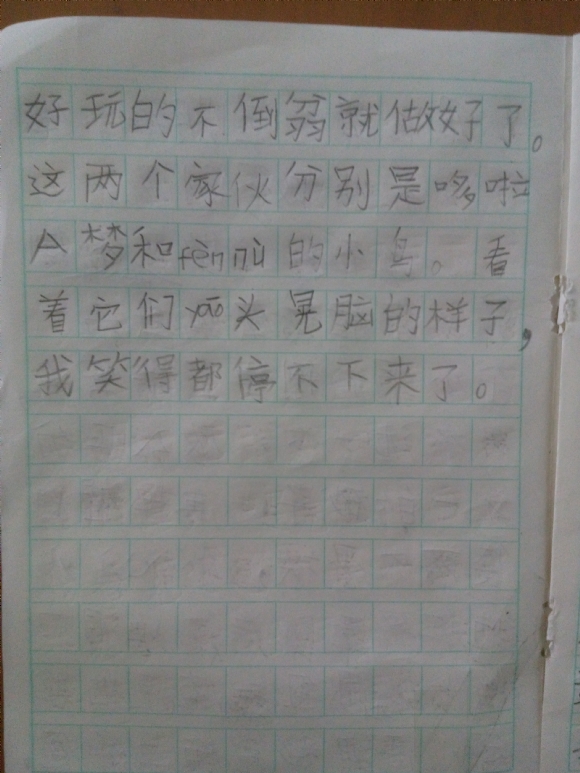 好玩的不倒翁就做好了。
这两个家伙分别是哆啦
A梦和fèn nù的小鸟。看
着它们yáo头晃脑的样子,
我笑得都停不下来了。